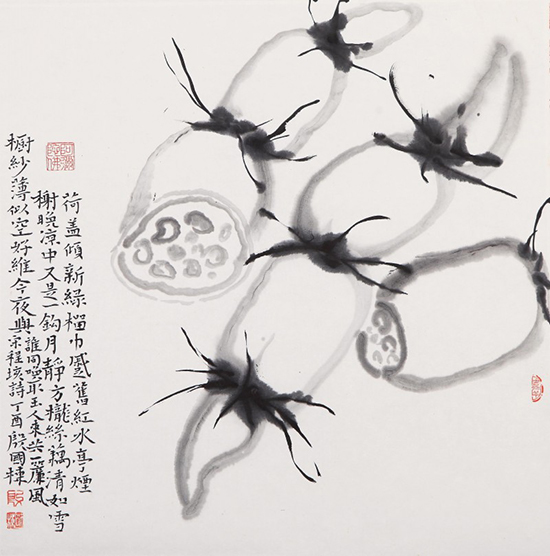 荷盖傾新綠榴巾蹙舊紅水亭煙
榭晚凉中又是一鈎月靜方櫳絲藕清如雪
橱紗薄似空好維今夜與
誰同喚取玉人來共一簾風
宋程垓詩丁酉殷國棟